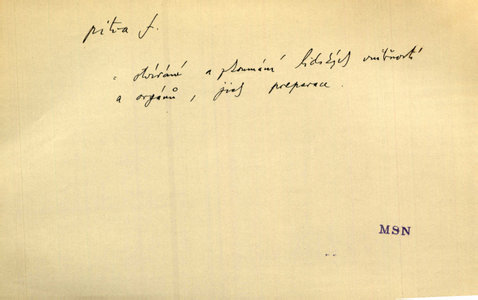 pitva f.
otvírání a zkoumání lidských vnitřností
a orgánů, jich preparace.
MSN